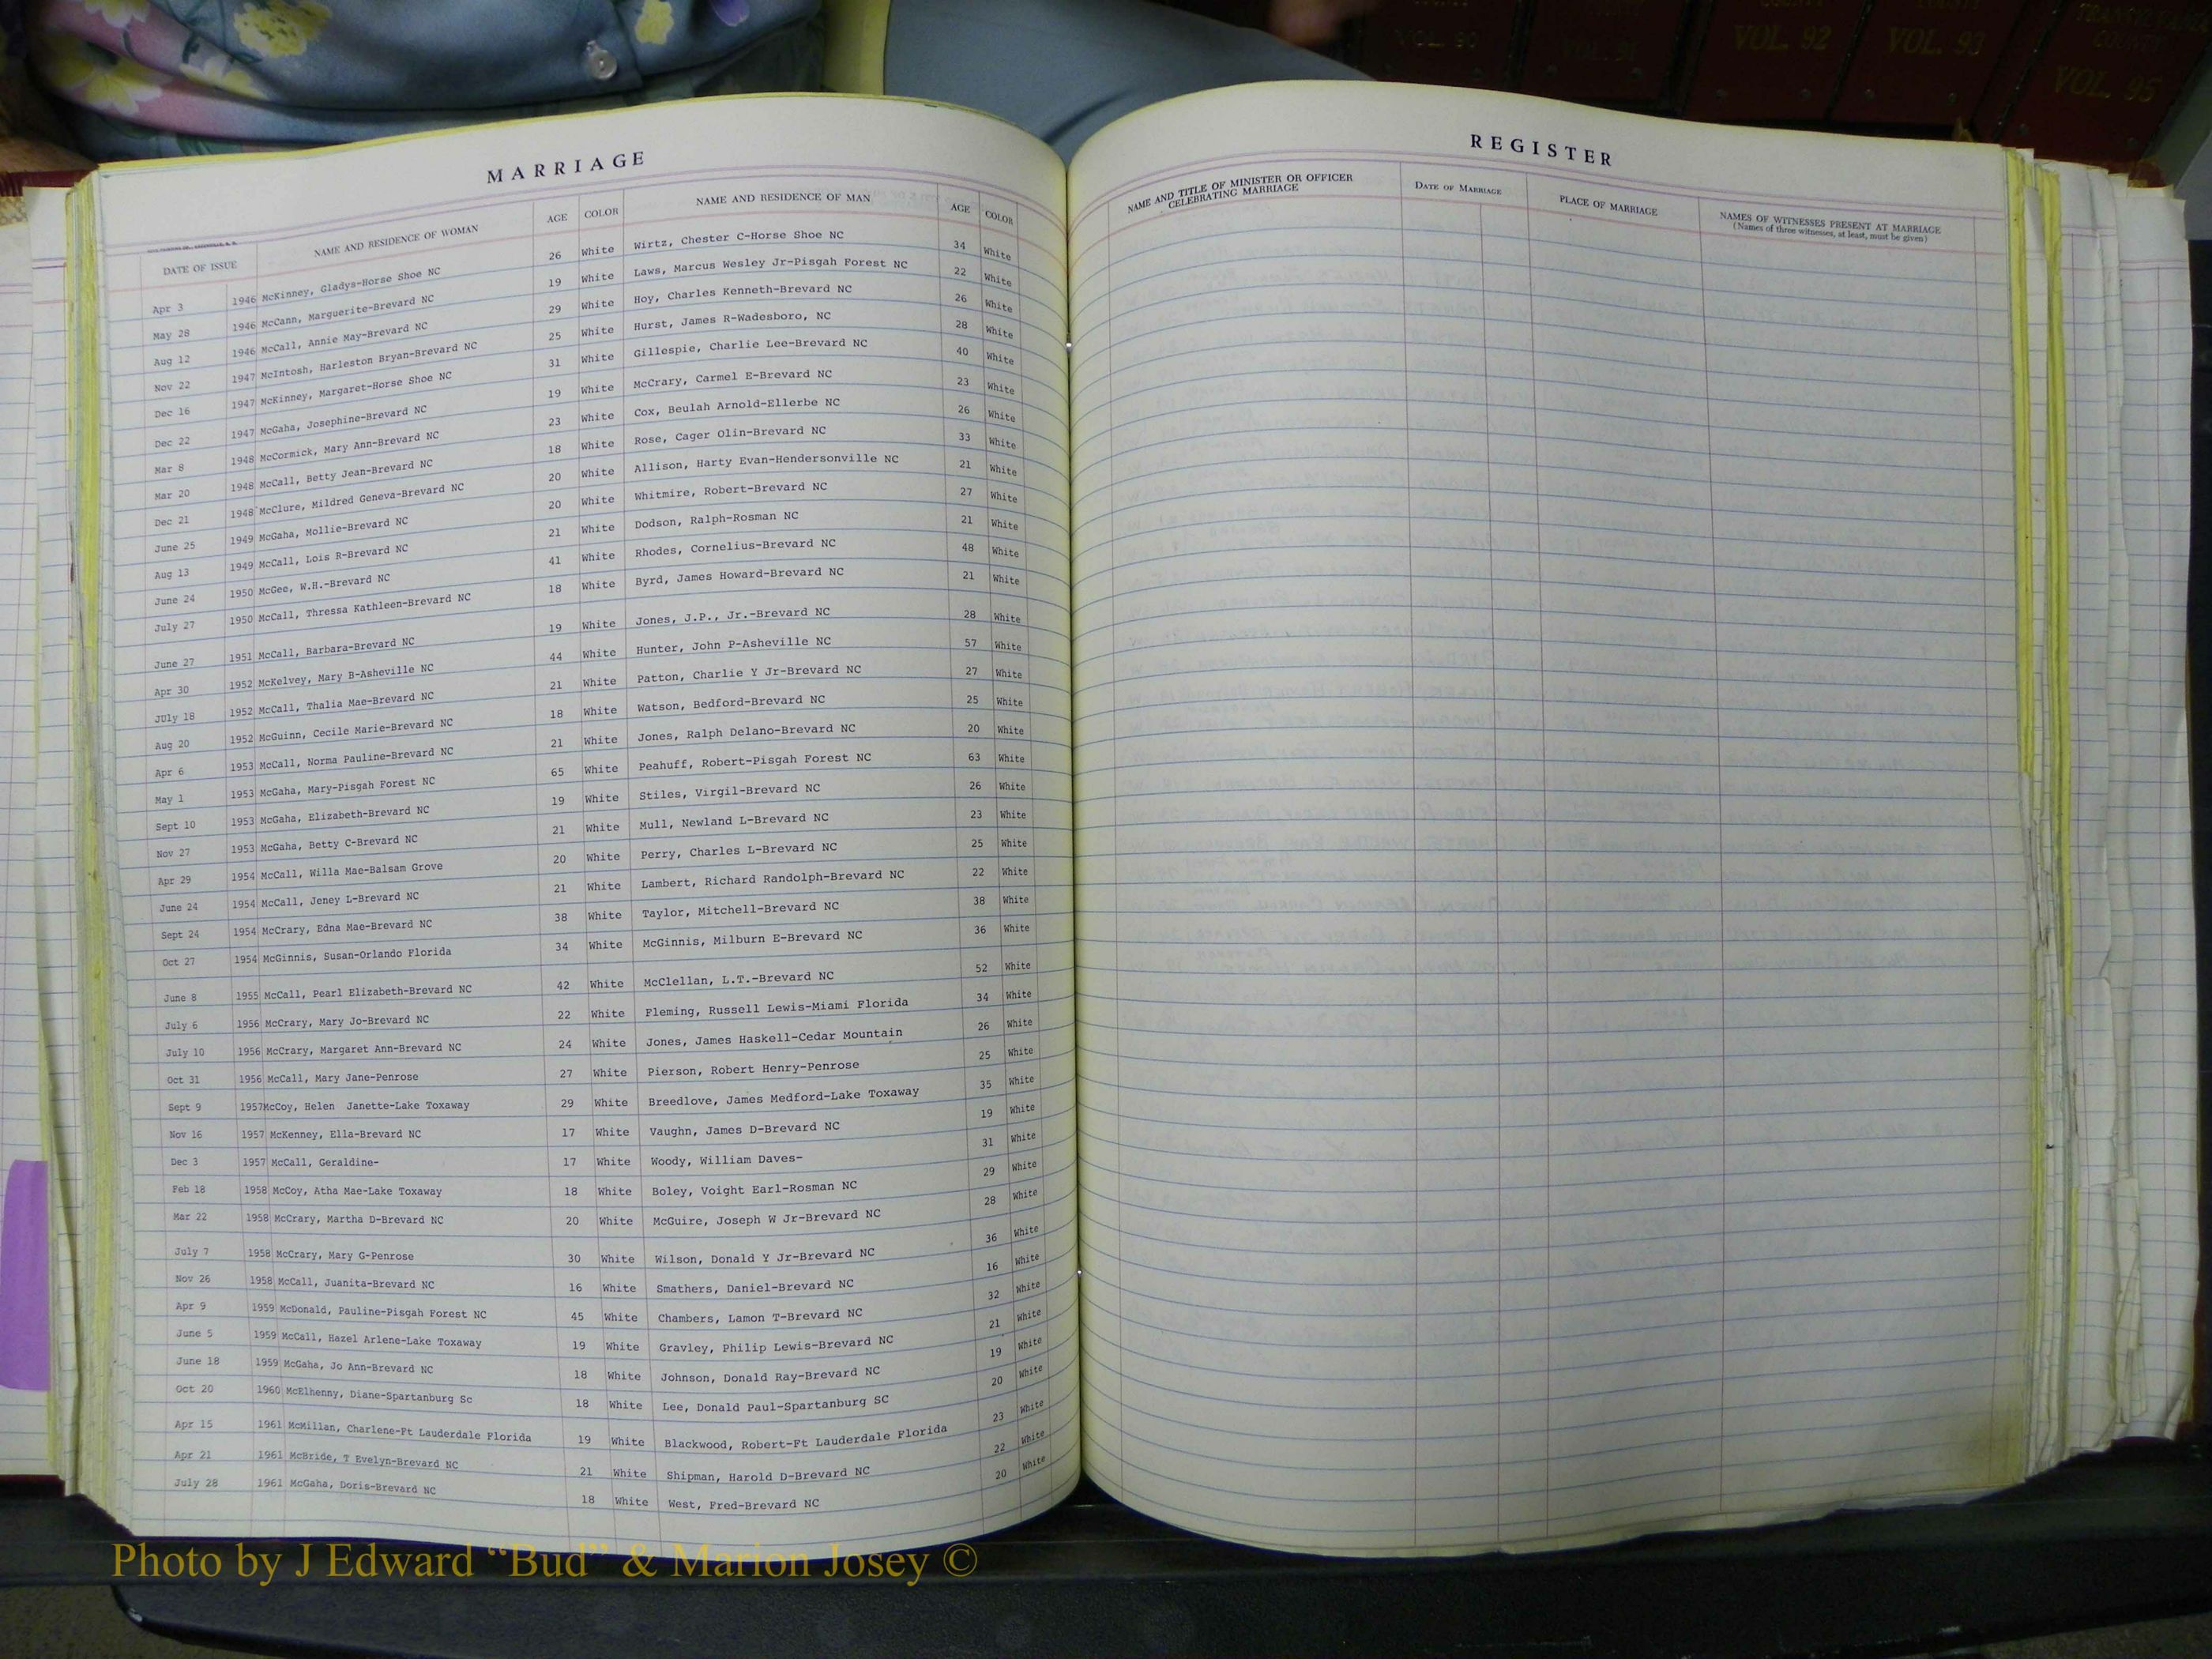 VOL. 90
VOL. 91
COUNTY
VOL. 92
COUNTY
VOL. 93
TRANSYLVANIA
COUNTY
VOL. 95
MARRIAGE
DATE OF ISSUE NAME AND RESIDENCE OF WOMAN AGE COLOR NAME AND RESIDENCE OF MAN AGE COLOR
Apr 3 1946 McKinney, Gladys-Horse Shoe NC 26 White Wirtz, Chester C-Horse Shoe NC 34 White
May 28 1946 McCann, Marguerite-Brevard NC 19 White Laws, Marcus Wesley Jr-Pisgah Forest NC 22 White
Aug 12 1946 McCall, Annie May-Brevard NC 29 White Hoy, Charles Kenneth-Brevard NC 26 White
Nov 22 1947 McIntosh, Harleston Bryan-Brevard NC 25 White Hurst, James R-Wadesboro, NC 28 White
Dec 16 1947 McKinney, Margaret-Horse Shoe NC 31 White Gillespie, Charlie Lee-Brevard NC 40 White
Dec 22 1947 McGaha, Josephine-Brevard NC 19 White McCrary, Carmel E-Brevard NC 23 White
Mar 8 1948 McCormick, Mary Ann-Brevard NC 23 White Cox, Beulah Arnold-Ellerbe NC 26 White
Mar 20 1948 McCall, Betty Jean-Brevard NC 18 White Rose, Cager Olin-Brevard NC 33 White
Dec 21 1948 McClure, Mildred Geneva-Brevard NC 20 White Allison, Harty Evan-Hendersonville NC 21 White
June 25 1949 McGaha, Mollie-Brevard NC 20 White Whitmire, Robert-Brevard NC 27 White
Aug 13 1949 McCall, Lois R-Brevard NC 21 White Dodson, Ralph-Rosman NC 21 White
June 24 1950 McGee, W.H.-Brevard NC 41 White Rhodes, Cornelius-Brevard NC 48 White
July 27 1950 McCall, Thressa Kathleen-Brevard NC 18 White Byrd, James Howard-Brevard NC 21 White
June 27 1951 McCall, Barbara-Brevard NC 19 White Jones, J.P., Jr.-Brevard NC 28 White
Apr 30 1952 McKelvey, Mary B-Asheville NC 44 White Hunter, John P-Asheville NC 57 White
JUly 18 1952 McCall, Thalia Mae-Brevard NC 21 White Patton, Charlie Y Jr-Brevard NC 27 White
Aug 20 1952 McGuinn, Cecile Marie-Brevard NC 18 White Watson, Bedford-Brevard NC 25 White
Apr 6 1953 McCall, Norma Pauline-Brevard NC 21 White Jones, Ralph Delano-Brevard NC 20 White
May 1 1953 McGaha, Mary-Pisgah Forest NC 65 White Peahuff, Robert-Pisgah Forest NC 63 White
Sept 10 1953 McGaha, Elizabeth-Brevard NC 19 White Stiles, Virgil-Brevard NC 26 White
Nov 27 1953 McGaha, Betty C-Brevard NC 21 White Mull, Newland L-Brevard NC 23 White
Apr 29 1954 McCall, Willa Mae-Balsam Grove 20 White Perry, Charles L-Brevard NC 25 White
June 24 1954 McCall, Jeney L-Brevard NC 21 White Lambert, Richard Randolph-Brevard NC 22 White
Sept 24 1954 McCrary, Edna Mae-Brevard NC 38 White Taylor, Mitchell-Brevard NC 38 White
Oct 27 1954 McGinnis, Susan-Orlando Florida 34 White McGinnis, Milburn E-Brevard NC 36 White
June 8 1955 McCall, Pearl Elizabeth-Brevard NC 42 White McClellan, L.T.-Brevard NC 52 White
July 6 1956 McCrary, Mary Jo-Brevard NC 22 White Fleming, Russell Lewis-Miami Florida 34 White
July 10 1956 McCrary, Margaret Ann-Brevard NC 24 White Jones, James Haskell-Cedar Mountain 26 White
Oct 31 1956 McCall, Mary Jane-Penrose 27 White Pierson, Robert Henry-Penrose 25 White
Sept 9 1957McCoy, Helen Janette-Lake Toxaway 29 White Breedlove, James Medford-Lake Toxaway 35 White
Nov 16 1957 McKenney, Ella-Brevard NC 17 White Vaughn, James D-Brevard NC 19 White
Dec 3 1957 McCall, Geraldine- 17 White Woody, William Daves- 31 White
Feb 18 1958 McCoy, Atha Mae-Lake Toxaway 18 White Boley, Voight Earl-Rosman NC 29 White
Mar 22 1958 McCrary, Martha D-Brevard NC 20 White McGuire, Joseph W Jr-Brevard NC 28 White
July 7 1958 McCrary, Mary G-Penrose 30 White Wilson, Donald Y Jr-Brevard NC 36 White
Nov 26 1958 McCall, Juanita-Brevard NC 16 White Smathers, Daniel-Brevard NC 16 White
Apr 9 1959 McDonald, Pauline-Pisgah Forest NC 45 White Chambers, Lamon T-Brevard NC 32 White
June 5 1959 McCall, Hazel Arlene-Lake Toxaway 19 White Gravley, Philip Lewis-Brevard NC 21 White
June 18 1959 McGaha, Jo Ann-Brevard NC 18 White Johnson, Donald Ray-Brevard NC 19 White
Oct 20 1960 McElhenny, Diane-Spartanburg Sc 18 White Lee, Donald Paul-Spartanburg SC 20 White
Apr 15 1961 McMillan, Charlene-Ft Lauderdale Florida 19 White Blackwood, Robert-Ft Lauderdale Florida 23 White
Apr 21 1961 McBride, T Evelyn-Brevard NC 21 White Shipman, Harold D-Brevard NC 22 White
July 28 1961 McGaha, Doris-Brevard NC 18 White West, Fred-Brevard NC 20 White
REGISTER
NAME AND TITLE OF MINISTER OR OFFICER CELEBRATING MARRIAGE DATE OF MARRIAGE PLACE OF MARRIAGE NAMES OF WITNESSES PRESENT AT MARRIAGE
(Names of three witnesses, at least, must be given)
Photo by J Edward “Bud” & Marion Josey ©